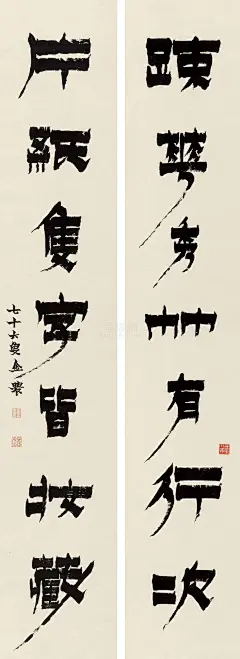 踈華秀竹有行次
片紙隻字皆收藏
七十六叟金農